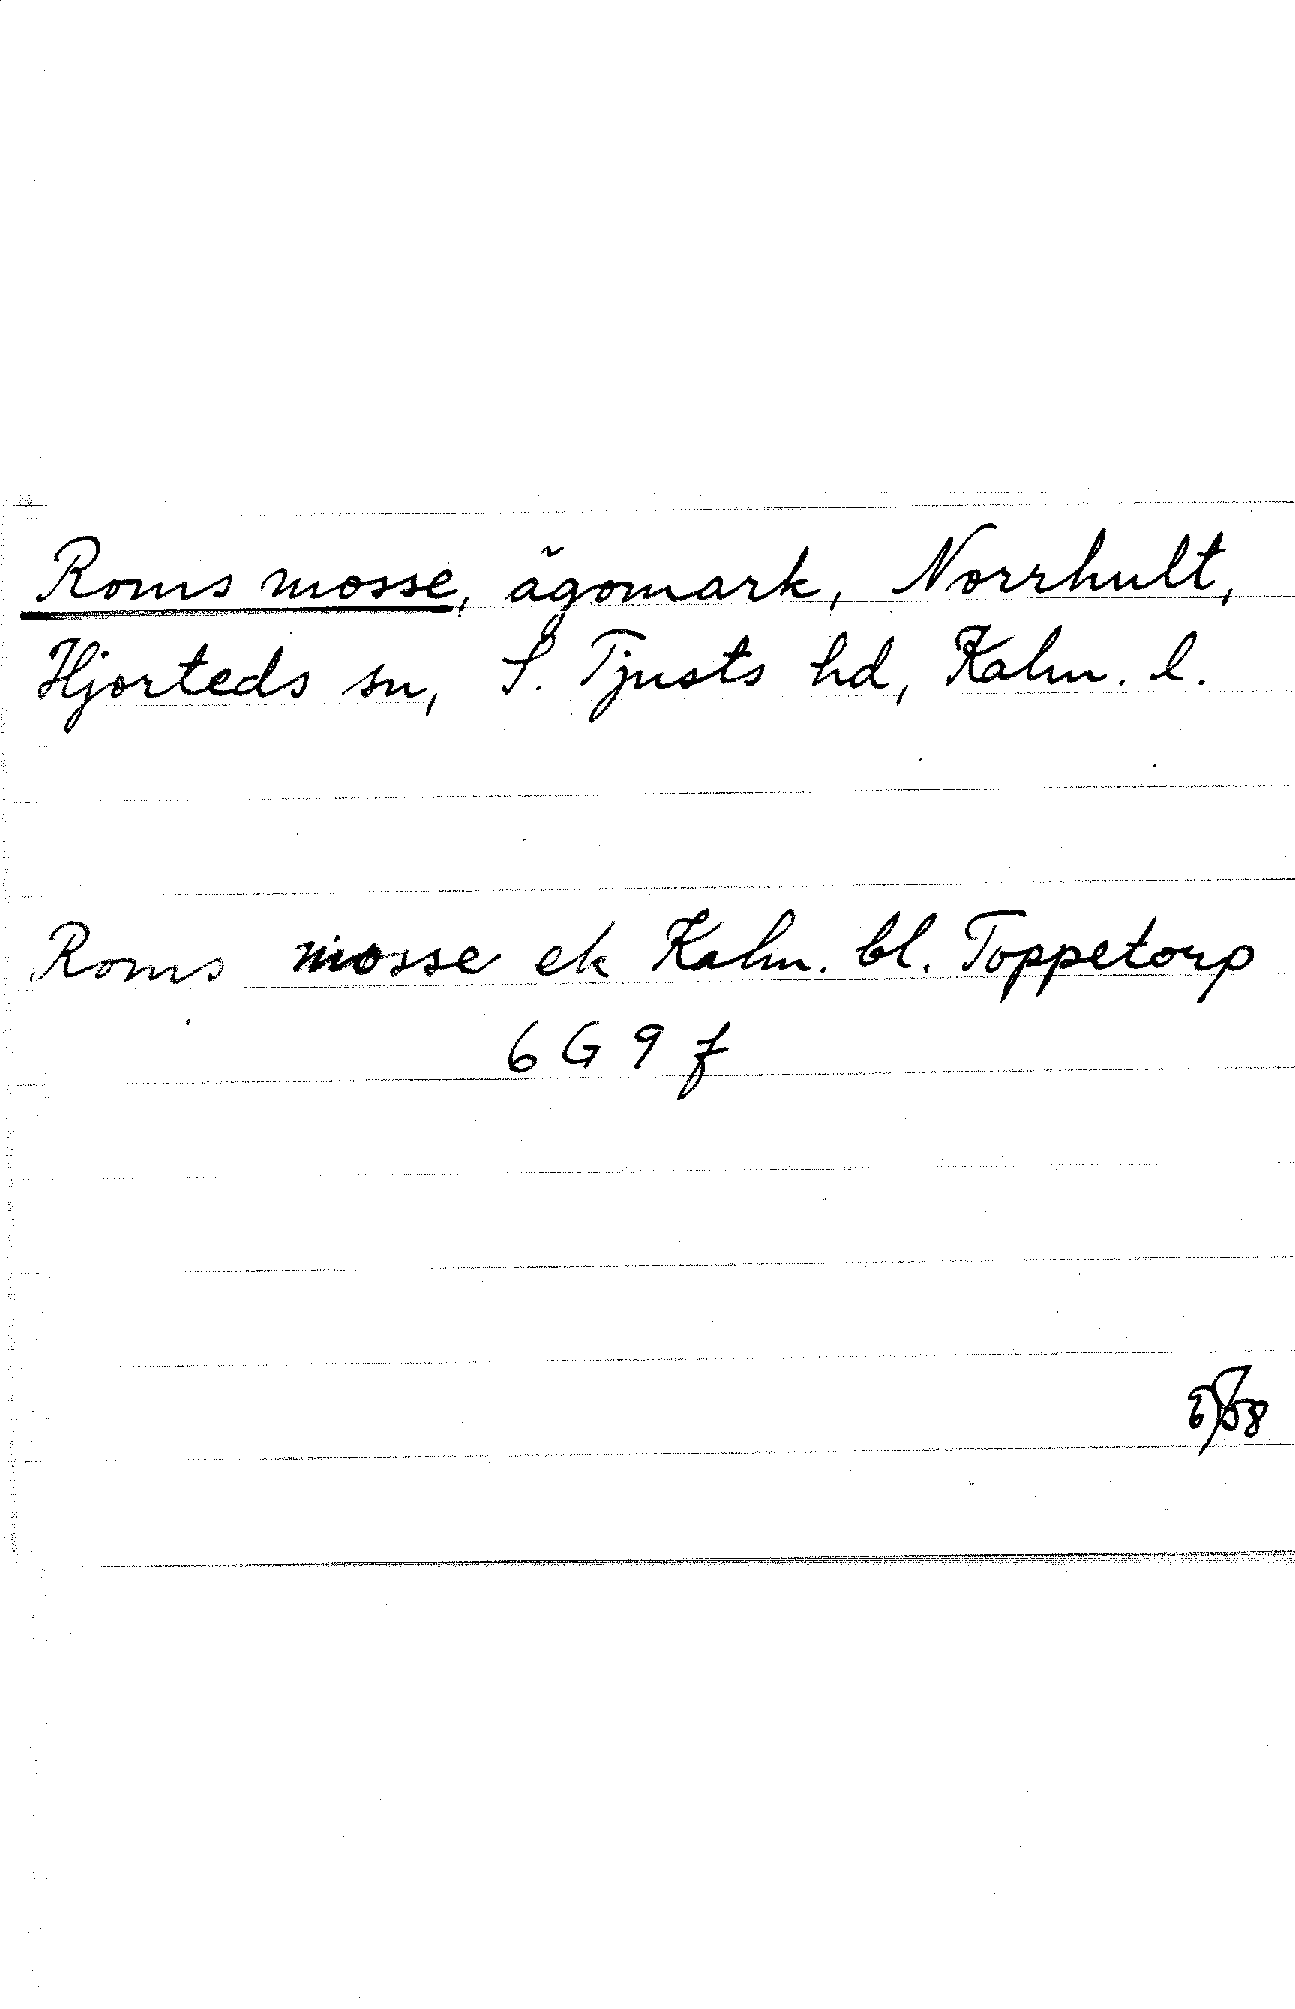 Roms mosse, ägomark, Norrhult,
Hjorteds sn, S. Tjusts hd, Kalm. l.
Roms mosse ek Kalm. bl. Toppetorp
6 G 9 f